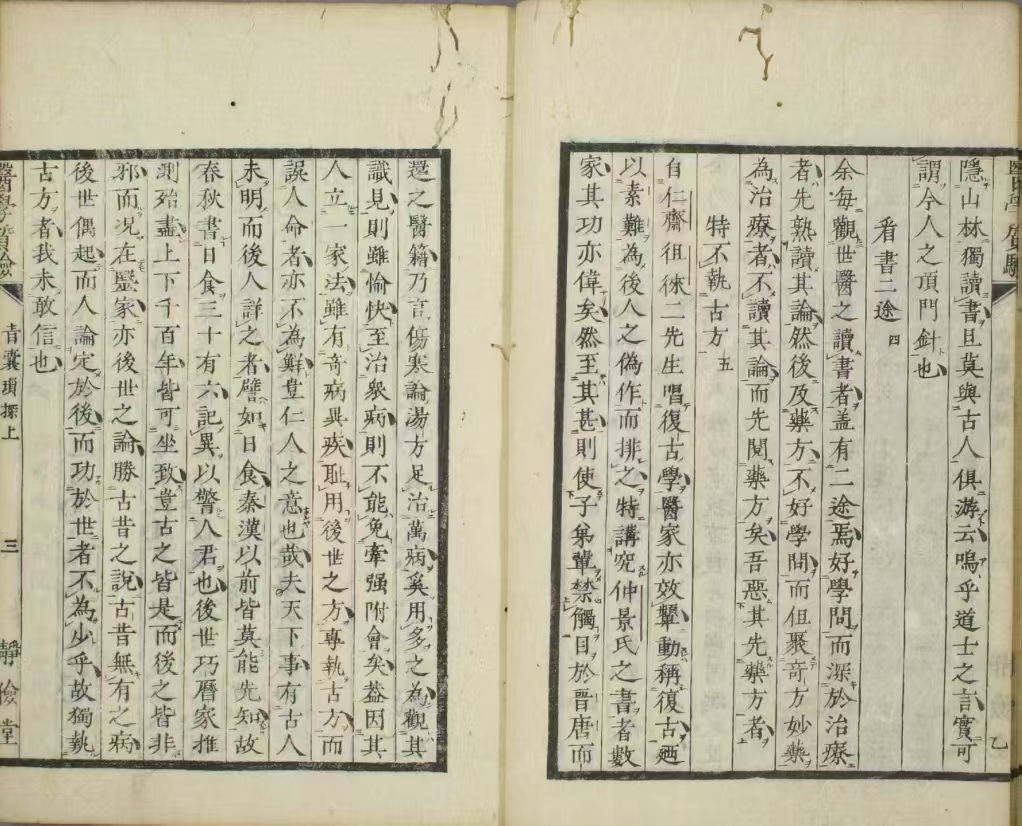 隱山林獨讀書旦莫與古人俱游云嗚乎道士之言實可
謂今人之頂門針也
看書二途 四
余每觀世醫之讀書者盖有二途焉好學問而深於治療
者先熟讀其論然後及藥方不好學問而但聚奇方妙藥
為治療者不讀其論而先閱藥方矣吾惡其先藥方者
特不執古方 五
自仁齋徂徠二先生唱復古學醫家亦效顰動稱復古廼
以素難為後人之偽作而排之特講究仲景氏之書者數
家其功亦偉矣然至其甚則使子弟輩禁觸目於晉唐而
還之醫籍乃言傷寒論湯方足治萬病奚用多之為觀其
識見則雖愉快至治衆病則不能免牽强附會矣蓋因其
人立一家法雖有奇病異疾耻用後世之方專執古方而
誤人命者亦不為鮮豈仁人之意也哉夫天下事有古人
未明而後人詳之者譬如日食秦漢以前皆莫能先知故
春秋書日食三十有六記異以警人君也後世巧曆家推
測殆盡上下千百年皆可坐致豈古之皆是而後之皆非
邪而况在醫家亦後世之論勝古昔之說古昔無有之病
後世偶起而人論定於後而功於世者不為少乎故獨執
古方者我未敢信也
醫學質驗 青囊瑣探上 三 靜儉堂